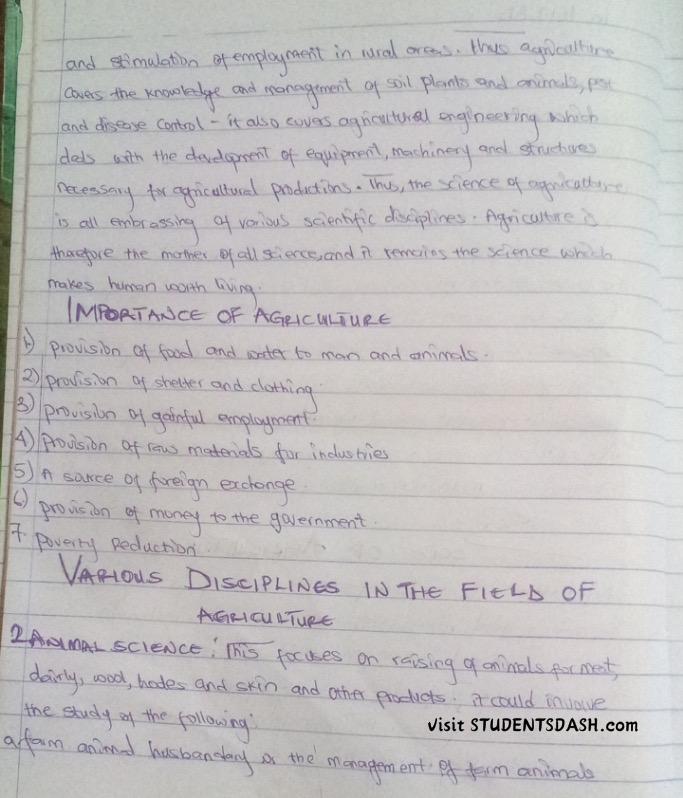 and stimulation of employment in rural areas. Thus agriculture
covers the knowledge and management of soil plants and animals, pest
and disease control - it also covers agricultural engineering which
dels with the development of equipment, machinery and structures
necessary for agricultural productions. Thus, the science of agriculture
is all embrassing of various scientific disciplines. Agriculture is
therefore the mother of all science, and it remains the science which
makes human worth living.
IMPORTANCE OF AGRICULTURE
1) provision of food and water to man and animals.
2) provision of shelter and clothing
3) provision of gainful employment.
4) provision of raw materials for industries
5) A source of foreign exchange.
6) provision of money to the government.
7. poverty Reduction.
VARIOUS DISCIPLINES IN THE FIELD OF
AGRICULTURE
2 ANIMAL SCIENCE: This focuses on raising of animals for meat,
dairly, wool, hodes and skin and other products. it could invouve
the study of the following:
visit STUDENTSDASH.com
a farm animal husbandary or the management of farm animals